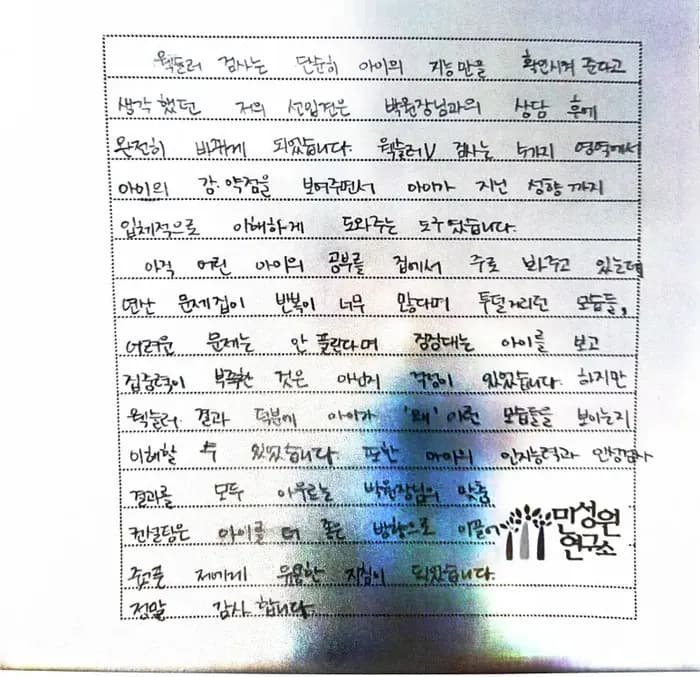 웩슬러 검사는 단순히 아이의 지능만을 확인시켜 준다고
생각했던 저의 선입견은 박원장님과의 상담 후에
완전히 바뀌게 되었습니다. 웩슬러V 검사는 5가지 영역에서
아이의 강·약점을 보여주면서 아이가 지닌 성향까지
입체적으로 이해하게 도와주는 도구였습니다.
아직 어린 아이의 공부를 집에서 주로 봐주고 있는데
연산 문제집이 반복이 너무 많다며 투덜거리던 모습들,
어려운 문제는 안 풀린다며 징징대는 아이를 보고
집중력이 부족한 것은 아닌지 걱정이 있었습니다. 하지만
웩슬러 결과 덕분에 아이가 '왜' 이런 모습들을 보이는지
이해할 수 있었습니다. 또한 아이의 인지능력과 인성검사
결과를 모두 아우르는 박원장님의 맞춤
컨설팅은 아이를 더 좋은 방향으로 이끌어
주고픈 저에게 유용한 지침이 되었습니다.
정말 감사합니다.
민성원
연구소